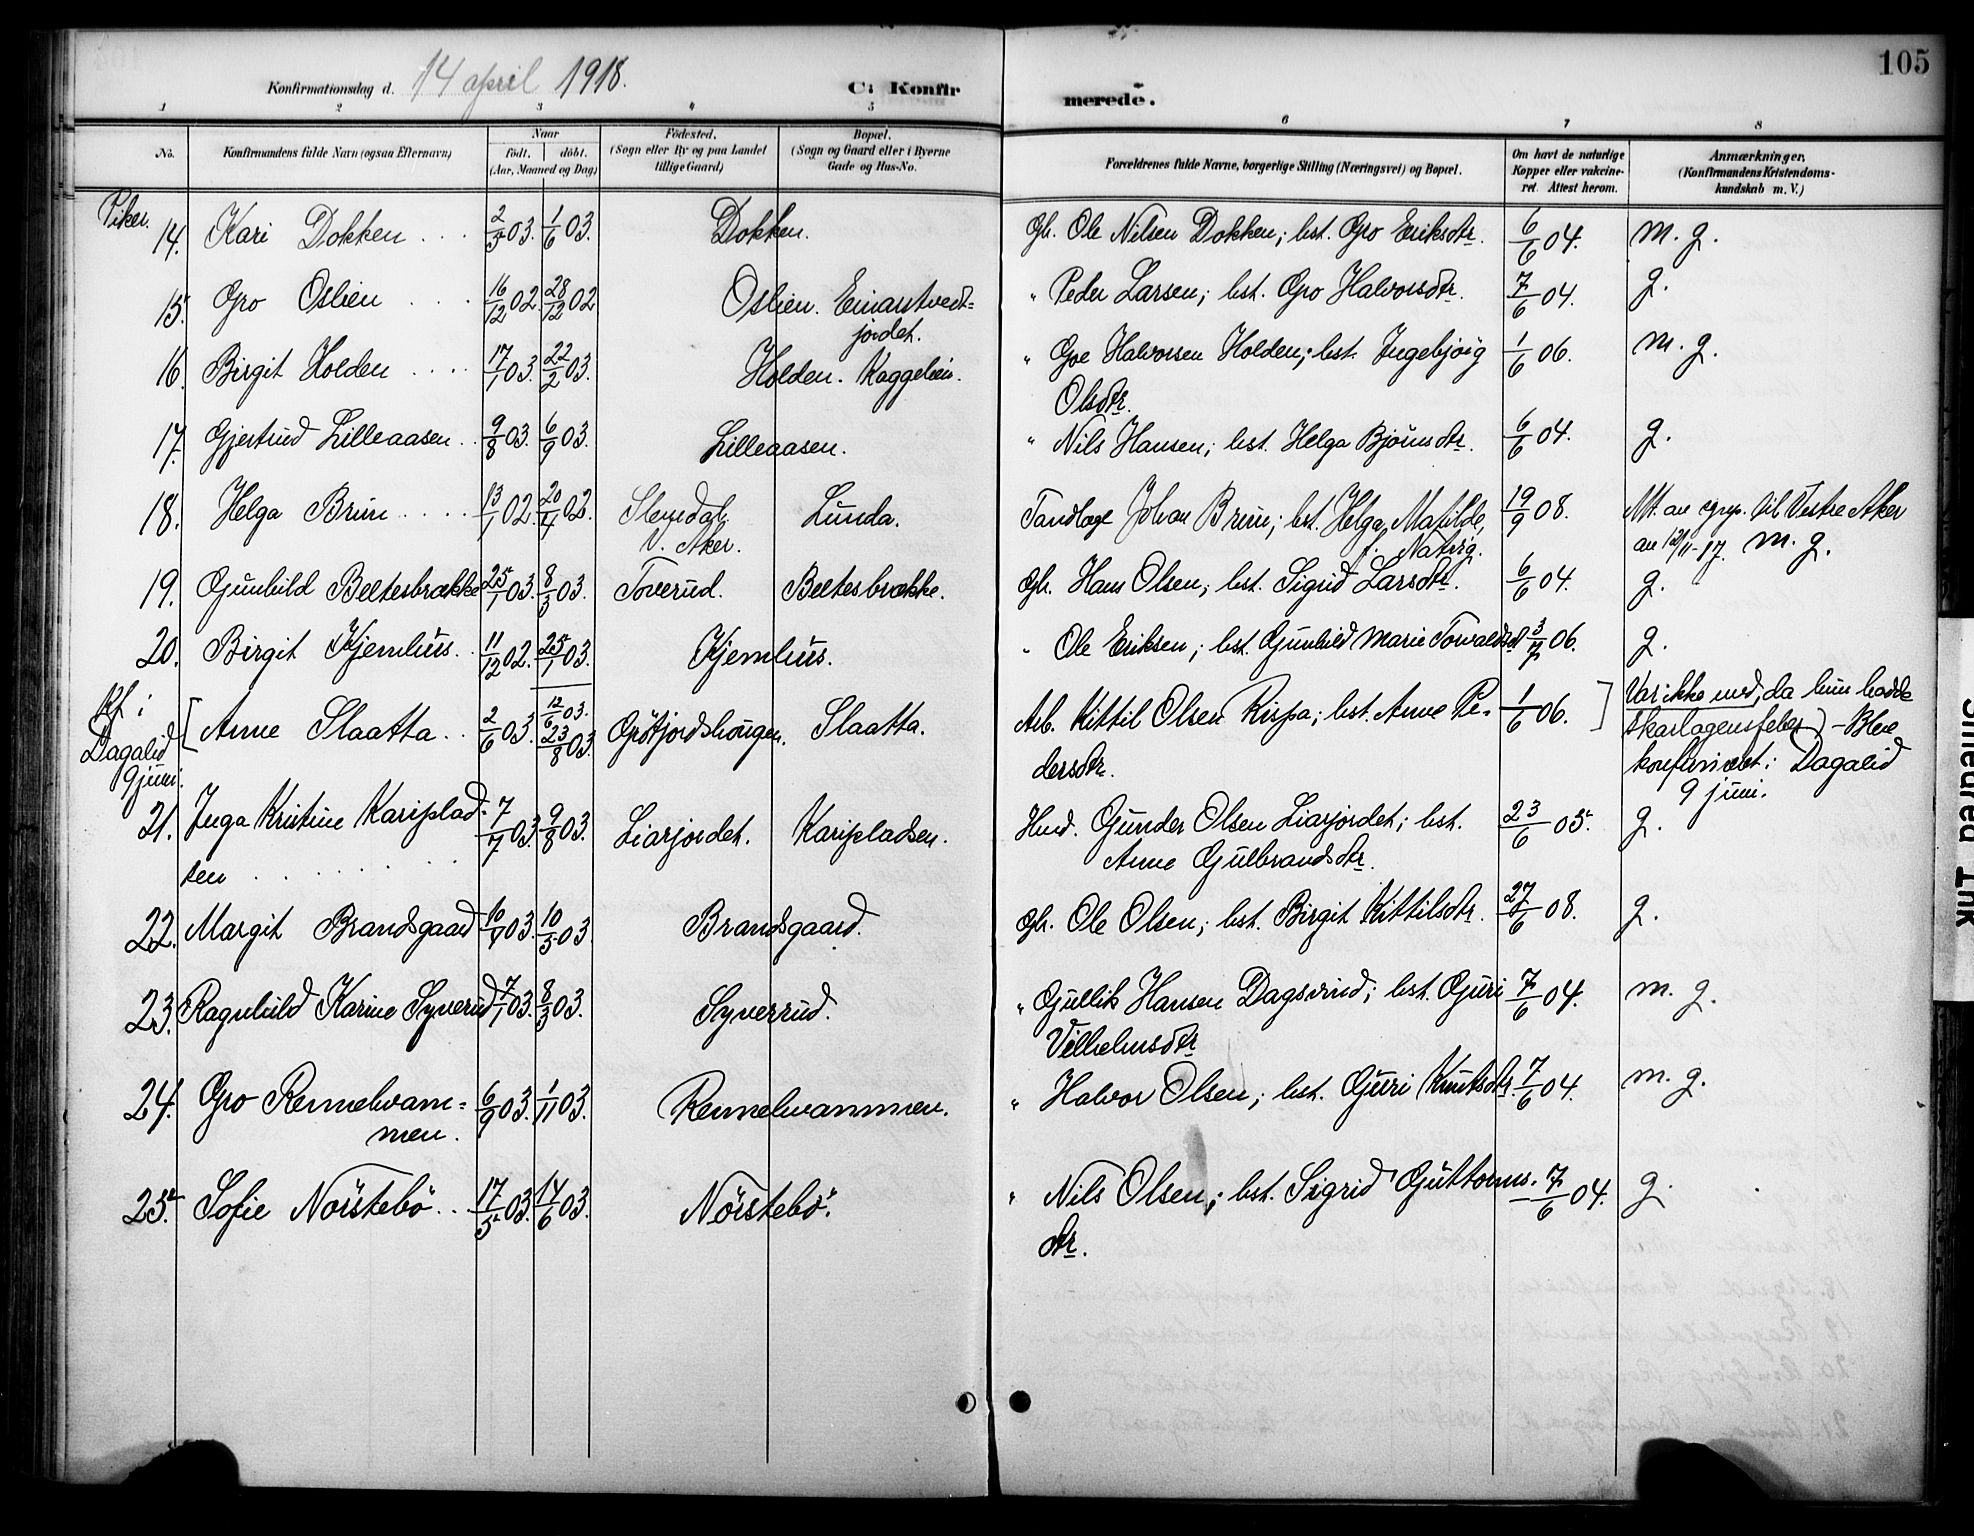 105
Konfirmationsdag d. 14 april 1918.
C: Konfir
merede.
1 2 3 4 5 6 7 8
No.
Konfirmandens fulde Navn (ogsaa Efternavn)
Naar
født. døbt.
(Aar, Maaned og Dag)
Fødested.
(Sogn eller By og paa Landet
tillige Gaard)
Bopæl.
(Sogn og Gaard eller i Byerne
Gade og Hus-No.
Forældrenes fulde Navne, borgerlige Stilling (Næringsvei) og Bopæl.
Om havt de naturlige
Kopper eller vakcine-
ret. Attest herom.
Anmærkninger.
(Konfirmandens Kristendoms-
kundskab m. V.)
Piker.
14. Kari Dokken . . . 2/5 03. 1/6 03. Dokken. Gb. Ole Nilsen Dokken; hst. Gro Eriksdtr. 6/6 04. m. g.
15. Gro Oslien . . . . 16/12 02. 28/12 02 Oslien. Einarstvedt=
jordet.
" Peder Larsen; hst. Gro Halvorsdtr. 7/6 04. g.
16. Birgit Holden . . . . 17/1 03. 22/2 03. Holden. Kaggelien. " Goe Halvorsen Holden; hst. Ingebjørg 1/6 06. m. g.
Olsdtr.
17. Gjertrud Lilleaasen . . 9/8 03. 6/9 03. Lilleaasen. " Nils Hansen; hst. Helga Bjørnsdtr. 6/6 04. g.
18. Helga Brun . . . . 13/1 02. 20/4 02. Slemdal.
V. Aker.
Lunda. Tandlæge Johan Brun; hst. Helga Matilde,
f. Natvig.
19/9 08. Att. av sgnpr. til Vestre Aker
av 12/11-17. m. g.
19. Gunhild Beltesbrække 25/1 03. 8/3 03. Toverud. Beltesbrække. Gb. Hans Olsen; hst. Sigrid Larsdtr. 6/6 04. g.
20. Birgit Hjemhus. . 11/12 02. 25/1 03. Hjemhus. " Ole Eriksen; hst. Gunhild Marie Torvaldsdt 3/7 06. g.
Kf. i
Dagalid
9 juni.
[Anne Slaatta. . 2/6 03. 12/6 03.
23/8 03.
Grøtjordshougen. Slaatta. Arb. Kittil Olsen Rispa; hst. Anne Pe-
dersdtr.
1/6 06. ] Var ikke med, da hun hadde
skarlagensfeber) - Blev
konfirmert i Dagalid
9 juni.
21. Inga Kristine Karisplad-
sen . . . . . .
7/7 03. 9/8 03. Liarjordet. Karispladsen. Husd. Gunder Olsen Liarjordet; hst.
Anne Gulbrandsdtr.
23/6 05. g.
22. Margit Brandsgaard 10/4 03. 10/5 03 Brandsgaard. Gb. Ole Olsen; hst. Birgit Kittilsdtr. 27/6 08. g.
23. Ragnhild Karine Syverrud 7/1 03. 8/3 03. Syverrud. " Gullik Hansen Dagsvrud; hst. Guri 7/6 04. m. g.
Vilhelmsdtr
24. Gro Rennehvam=
men.
6/9 03. 1/11 03. Rennehvammen. " Halvor Olsen; hst. Guri Knutsdtr. 7/6 04. m. g.
25. Sofie Nørstebø. . 17/5 03. 14/6 03. Nørstebø. " Nils Olsen; hst. Sigrid Guttorms- 7/6 04. g.
dtr.
Smeared Ink